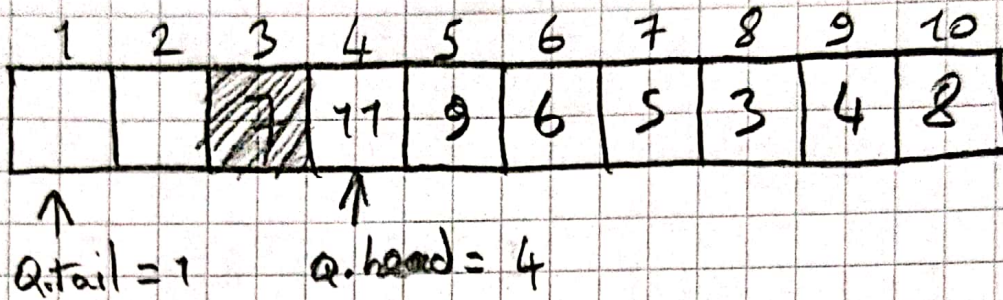 1 2 3 4 5 6 7 8 9 10
7 11 9 6 5 3 4 8
Q.tail = 1 Q.head = 4